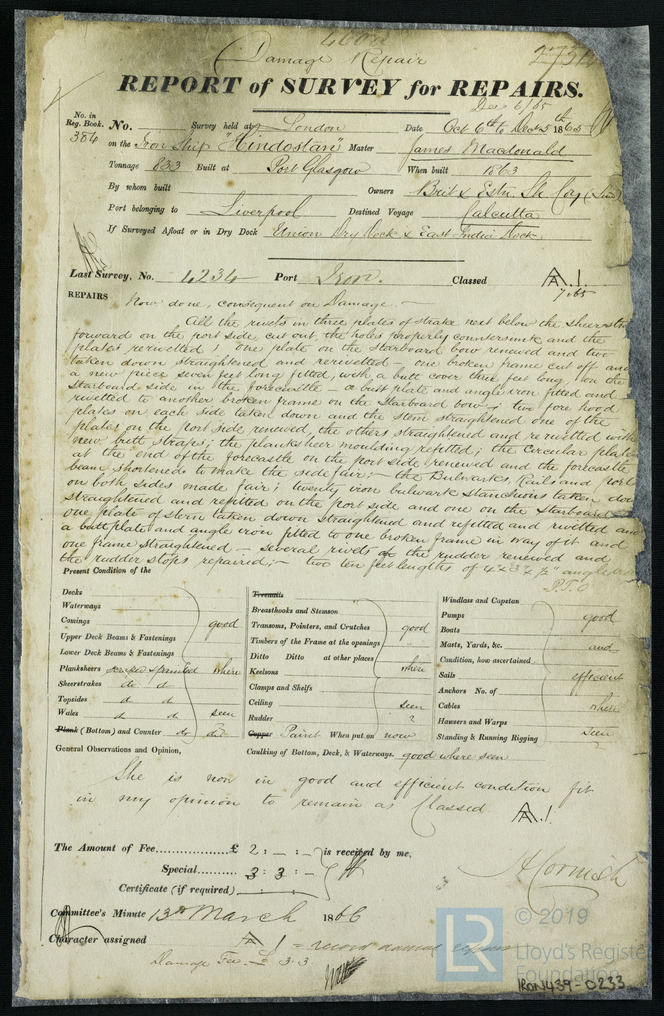 Damage Repair
REPORT of SURVEY for REPAIRS.
Dec 6/65
No. in
Reg. Book.
384
No. Survey held at London Date Oct 6th to Dec 5th 1865
on the Iron Ship "Hindostan" Master James Macdonald
Tonnage 833 Built at Port Glasgow When built 1863
By whom built Owners Brit & Estn Sh. Coy (Lim)
Port belonging to Liverpool Destined Voyage Calcutta
If Surveyed Afloat or in Dry Dock Union Dry Dock & East India Dock.
Last Survey, No. 4234 Port Iron. Classed A.1.
7,65
REPAIRS Now done, consequent on Damage.
All the rivets in three plates of strake next below the sheerstrake
forward on the port side, cut out, the holes properly countersunk and the
plates rerivetted; one plate on the starboard bow renewed and two
taken down straightened and rerivetted - one broken frame cut off and
a new piece seven feet long fitted, with a butt cover three feet long, on the
Starboard side in the forecastle - a butt plate and angle iron fitted and
rivetted to another broken frame on the starboard bow; two fore hood
plates on each side taken down and the stem straightened one of the
plates on the port side renewed, the others straightened and rerivetted with
new butt straps; the planksheer moulding refitted; the circular plate
at the end of the forecastle on the port side renewed and the forecastle
beam shortened to make the side fair; - the Bulwarks, Rails and port
on both sides made fair; twenty iron bulwark stanchions taken down
straightened and refitted on the port side and one on the starboard
one plate of stern taken down straightened and refitted and rivetted and
a butt plate and angle iron fitted to one broken frame in way of it and
one frame straightened - several rivets of the rudder renewed and
the rudder stops repaired; - two ten feet lengths of 4 x 3 x ½" angle
P.T.O
Present Condition of the
Decks
Waterways
Comings good
Upper Deck Beams & Fastenings
Lower Deck Beams & Fastenings
Planksheers where
Sheerstrakes do d
Topsides d d
Wales d d seen
Plank (Bottom) and Counter do do
Treenails
Breasthooks and Stemson
Transoms, Pointers, and Crutches good
Timbers of the Frame at the openings
Ditto Ditto at other places
Keelsons where
Clamps and Shelfs
Ceiling seen
Rudder ?
Copper Paint When put on now
Caulking of Bottom, Deck, & Waterways. good where seen
Windlass and Capstan
Pumps good
Boats
Masts, Yards, &c. and
Condition, how ascertained
Sails efficient
Anchors No. of
Cables where
Hawsers and Warps
Standing & Running Rigging seen
General Observations and Opinion,
She is now in good and efficient condition fit
in my opinion to remain as Classed A.1.
The Amount of Fee £ 2 : - : - is received by me,
Special 3 : 3 : -
Certificate (if required)
A Cornish
Committee's Minute 13th March 1866
Character assigned A 1 = record damage repairs
Damage Fee £ 3:3
LR
© 2019
Lloyd's Register
Foundation
IRON439-0233